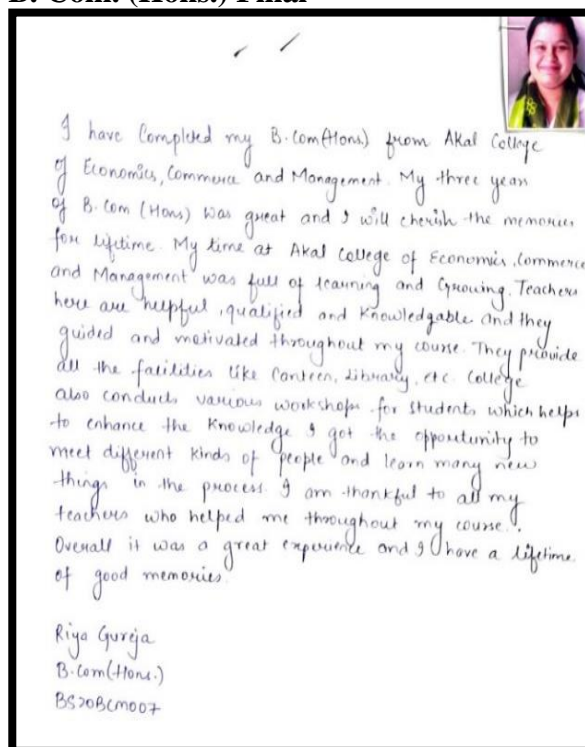 B. Com. (Hons.) Final
I have Completed my B.Com(Hons.) from Akal College
of Economics, Commerce and Management. My three years
of B.Com (Hons) was great and I will cherish the memories
for lifetime. My time at Akal College of Economics, Commerce
and Management was full of learning and Growing. Teachers
here are helpful, qualified and Knowledgable and they
guided and motivated throughout my course. They provide
all the facilities like Canteen, Library, etc. College
also conducts various workshops for students which helps
to enhance the Knowledge I got the opportunity to
meet different kinds of people and learn many new
things in the process. I am thankful to all my
teachers who helped me throughout my course.
Overall it was a great experience and I have a lifetime
of good memories.
Riya Gureja
B.Com(Hons.)
BS20BCM007